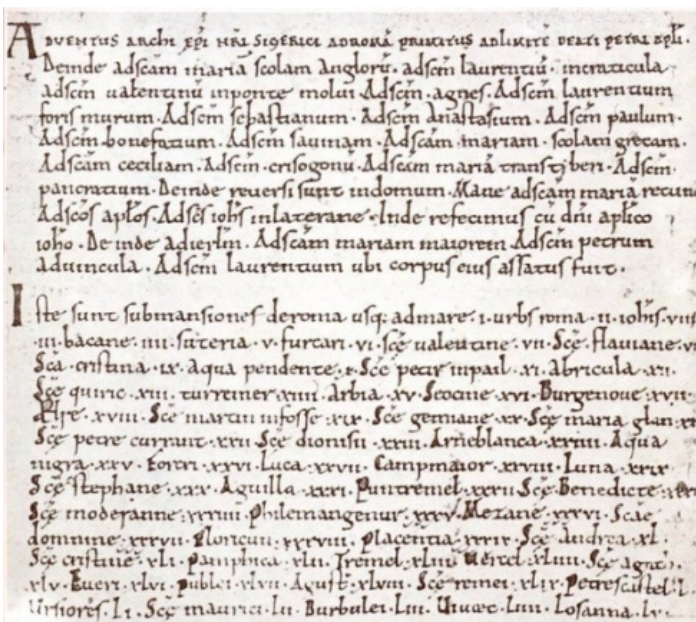 ADVENTUS ARCHI EP̄I NR̄I SIGERICI ADROMĀ PRIMITUS ADLIMITĒ BEATI PETRI AP̄LI·
Deinde adsc̄am mariā scolam anglorū· adsc̄m laurentiū· incraticula
adsc̄m valentinū inponte molui· Adsc̄m· agnes· Adsc̄m laurentium
foris murum· Adsc̄m sebastianum· Adsc̄m Anastasium· Adsc̄m paulum·
Adsc̄m bonefatium· Adsc̄m sauinam· Adsc̄am· mariam· scolam grecam·
Adsc̄am ceciliam· Adsc̄m· crisogonū· Adsc̄am mariā transtyberi· Adsc̄m·
pancratium· Deinde reuersi sunt indomum· Mane adsc̄am mariā rotun
Adsc̄os ap̄los· Adsc̄s ioh̄s inlaterane· Inde refecimus cū dn̄i ap̄lico
ioh̄o· De inde adierl̄m· Adsc̄am mariam maiorem Adsc̄m petrum
aduincula· Adsc̄m laurentium ubi corpus eius assatus fuit·
Iste sunt submansiones deroma usq; admare· i· urbs roma· ii· ioh̄is· viiii
iii· bacane· iiii· suteria· v· furcari· vi· sc̄e valentine· vii· Sc̄e· flauiane· vi
Sc̄a· cristina· ix· Aqua pendente· x· Sc̄e petir inpail· xi· Abricula· xii·
Sc̄e quiric· xiii· turreiner· xiiii· Arbia· xv· Seocine· xvi· Burgenoue· xvii·
Ælse· xviii· Sc̄e martin infosse· xix· Sc̄e gemiane· xx· Sc̄e maria glan· xxi
Sc̄e petre currant· xxii· Sc̄e dionisii· xxiii· Arneblanca· xxiiii· Aqua
nigra· xxv· Forcri· xxvi· Luca· xxvii· Campmaior· xxviii· Luna· xxix·
Sc̄e stephane· xxx· Aguilla· xxxi· Puntremel· xxxii· Sc̄e Benedicte· xxxiii
Sc̄e moderanne· xxxiiii· Philemangenur· xxxv· Mezane· xxxvi· Scae
domnine· xxxvii· Floricun· xxxviii· Placentia· xxxix· Sc̄e Andrea· xl·
Sc̄e cristine· xli· Pamphica· xlii· Tremel· xliii· Vercel· xliiii· Sc̄e agath·
xlv· Everi· xlvi· Publei· xlvii· Agusta· xlviii· Sc̄e remei· xlix· Petrescastel· l·
Ursiores· li· Sc̄e maurici· lii· Burbulei· liii· Vivaec· liiii· Losanna· lv·